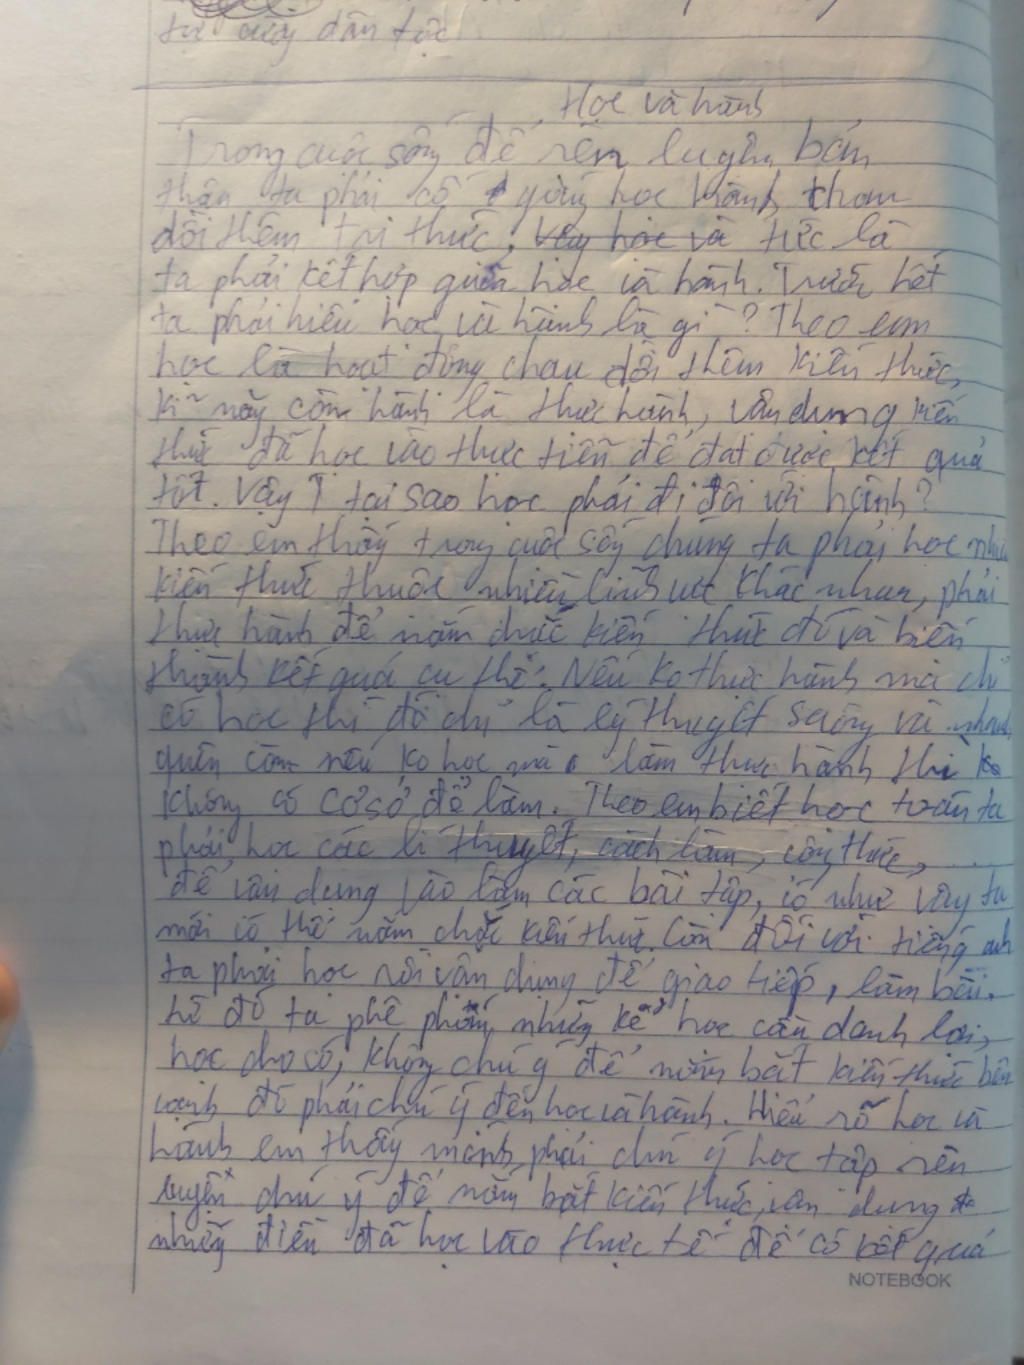 tự dân tộc
Học và hành
Trong cuộc sống để rèn luyện bản
thân ta phải cố gắng học hành, chau
dồi thêm tri thức, Vậy học và tức là
ta phải kết hợp giữa học và hành. Trước hết
ta phải hiểu học và hành là gì? Theo em
học là hoạt động chau dồi thêm kiến thức,
kĩ năng còn hành là thực hành, vận dụng kiến
thức đã học vào thực tiễn để đạt được kết quả
tốt. Vậy tại sao học phải đi đôi với hành?
Theo em thấy trong cuộc sống chúng ta phải học nhiều
kiến thức thuộc nhiều lĩnh vực khác nhau, phải
thực hành để nắm chắc kiến thức đó và biến
thành kết quả cụ thể. Nếu ko thực hành mà chỉ
có học thì đó chỉ là lý thuyết suông và nhanh
quên còn nếu ko học mà làm thực hành thì
không có cơ sở để làm. Theo em biết học toán ta
phải học các lí thuyết, cách làm, công thức, ...
để vận dụng vào làm các bài tập, có như vậy ta
mới có thể nắm chắc kiến thức. Còn đối với tiếng anh
ta phải học rồi vận dụng để giao tiếp, làm bài.
từ đó ta phê phán những kẻ học cầu danh lợi,
học cho có, không chú ý để nắm bắt kiến thức bên
cạnh đó phải chú ý đến học và hành. Hiểu rõ học và
hành em thấy mình phải chú ý học tập rèn
luyện chú ý để nắm bắt kiến thức, vận dụng
những điều đã học vào thực tế để có kết quả
NOTEBOOK